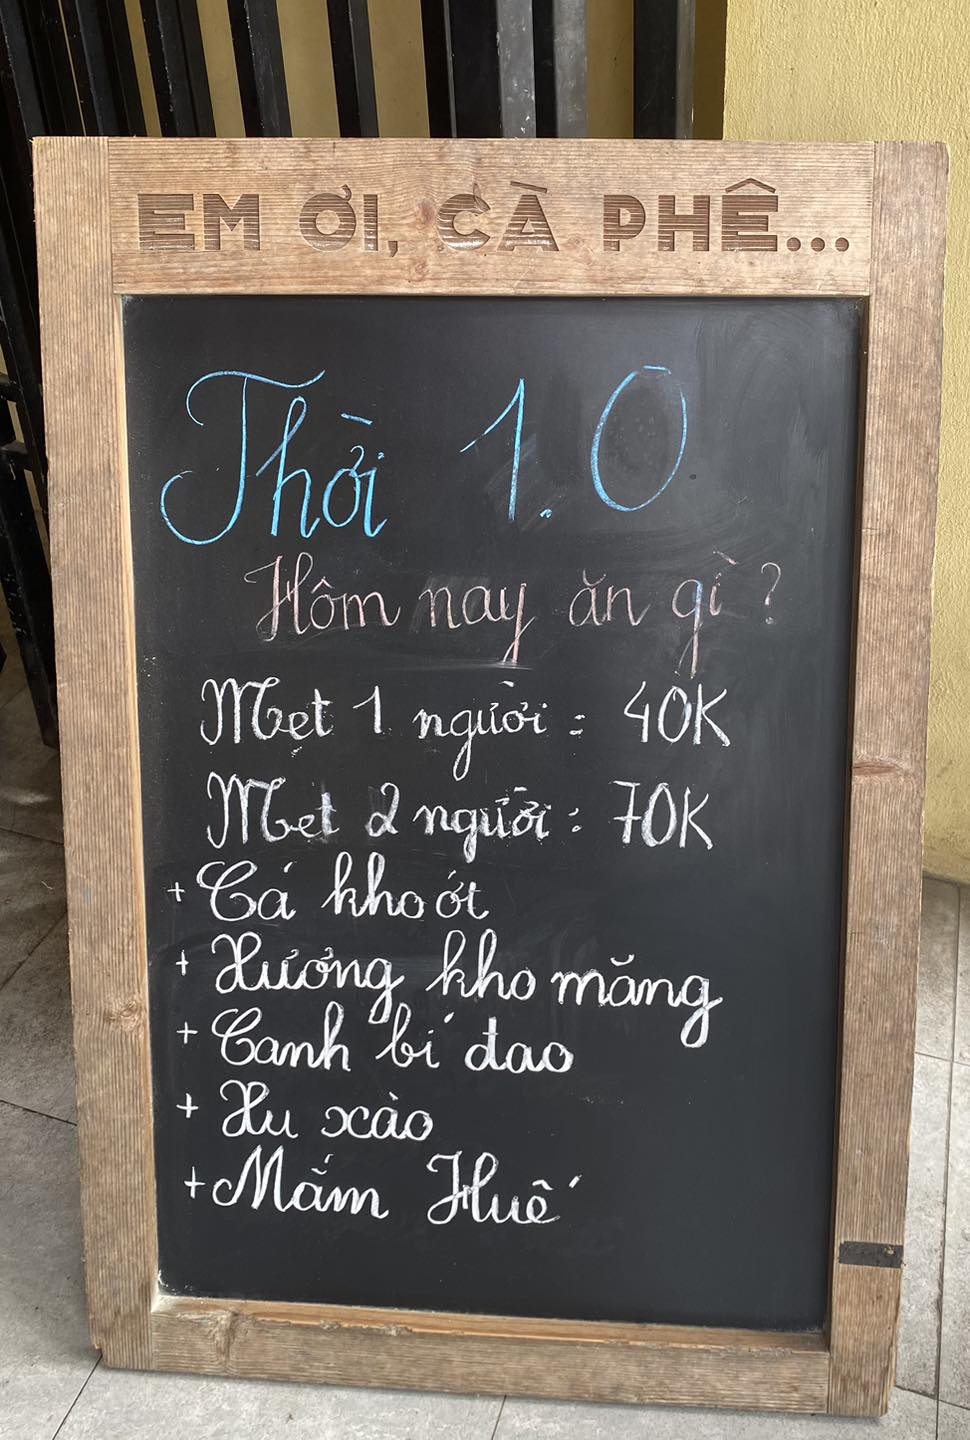 EM ƠI, CÀ PHÊ...
Thời 1.0
Hôm nay ăn gì ?
Mẹt 1 người : 40K
Mẹt 2 người : 70K
+ Cá kho ớt
+ Xương kho măng
+ Canh bí đao
+ Xu xào
+ Mắm Huế